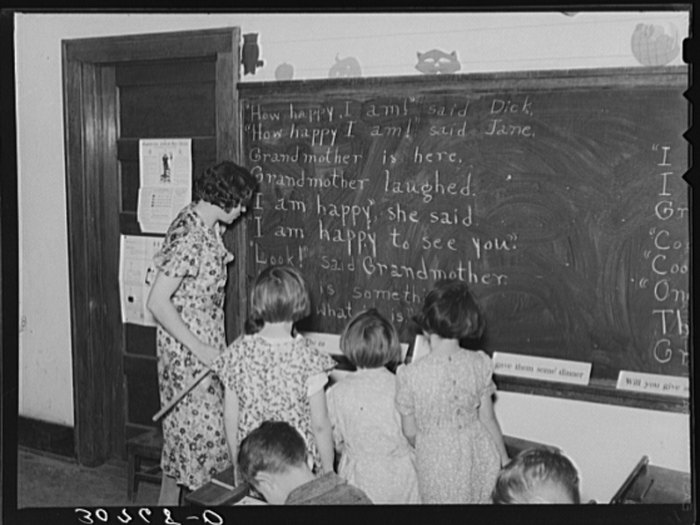 "How happy I am!" said Dick.
"How happy I am!" said Jane.
Grandmother is here.
Grandmother laughed.
"I am happy", she said.
"I am happy to see you".
"Look!" said Grandmother.
is someth
What is
"I
I
Gr
"Co
"Coo
"On
Th
Gr
gave them some dinner
Will you give
30268-D